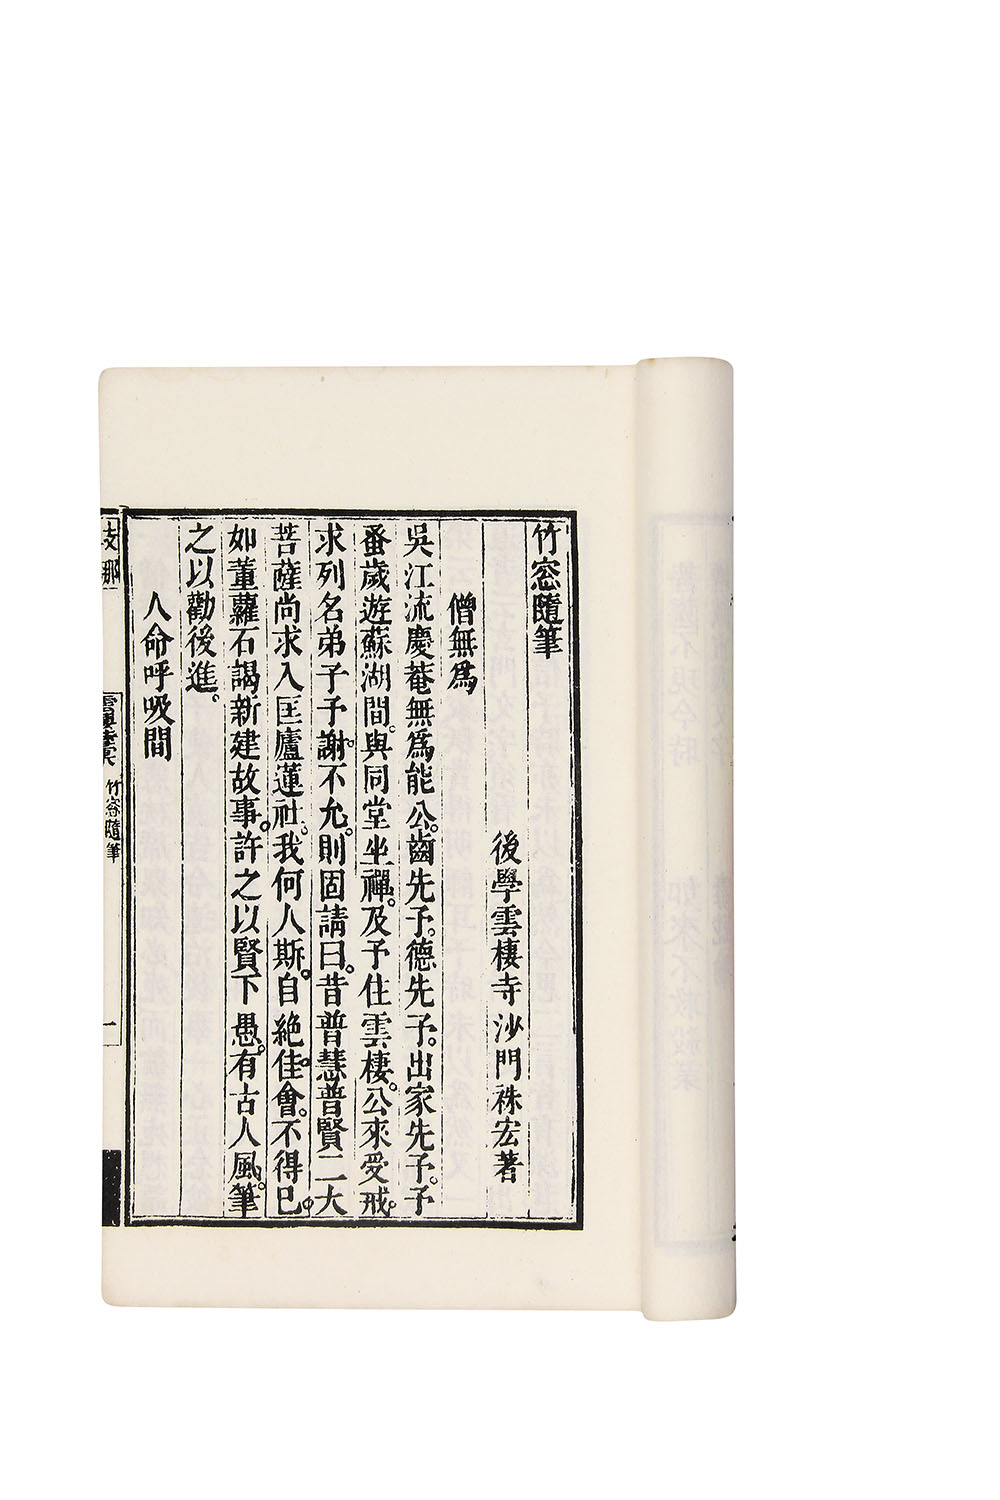 竹窓隨筆
後學雲棲寺沙門袾宏著
僧無爲
吳江流慶菴無爲能公。齒先予。德先予。出家先予。予
蚤歲遊蘇湖間。與同堂坐禪。及予住雲棲。公來受戒。
求列名弟子予謝。不允。則固請曰。昔普慧普賢二大
菩薩尚求入匡廬蓮社。我何人斯。自絶佳會。不得已。
如董蘿石謁新建故事。許之以賢下愚。有古人風。筆
之以勸後進。
人命呼吸間
支那
竹窓隨筆
一